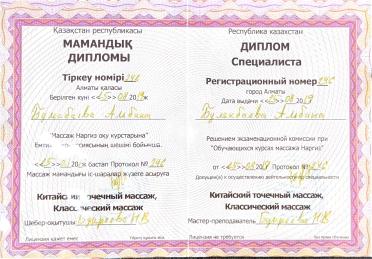 Қазақстан республикасы
МАМАНДЫҚ
ДИПЛОМЫ
Тіркеу номірі 242
Алматы қаласы
Берілген күні <<15>>08 2019ж
Альбина
"Массаж Наргиз оқу курстарына"
шешімі бойынша.
бастап Протокол № 242
Массаж мамандығы іс-шаралар жүзеге асыруға
Китайский точечный массаж,
Классический массаж
Шебер-оқытушы
Лицензия қажет емес
Республика казахстан
ДИПЛОМ
Специалиста
Регистрационный номер 242
город Алматы
Дата выдачи <<15>>08 2019
Альбина
Решением экзаменационной комиссии при
"Обучающихся курсах массажа Наргиз"
от <<15>>08 2019 Протокол № 242
Допущен(а) к осуществлению деятельности по специальности
Китайский точечный массаж,
Классический массаж
Мастер-преподаватель
Лицензия не требуется